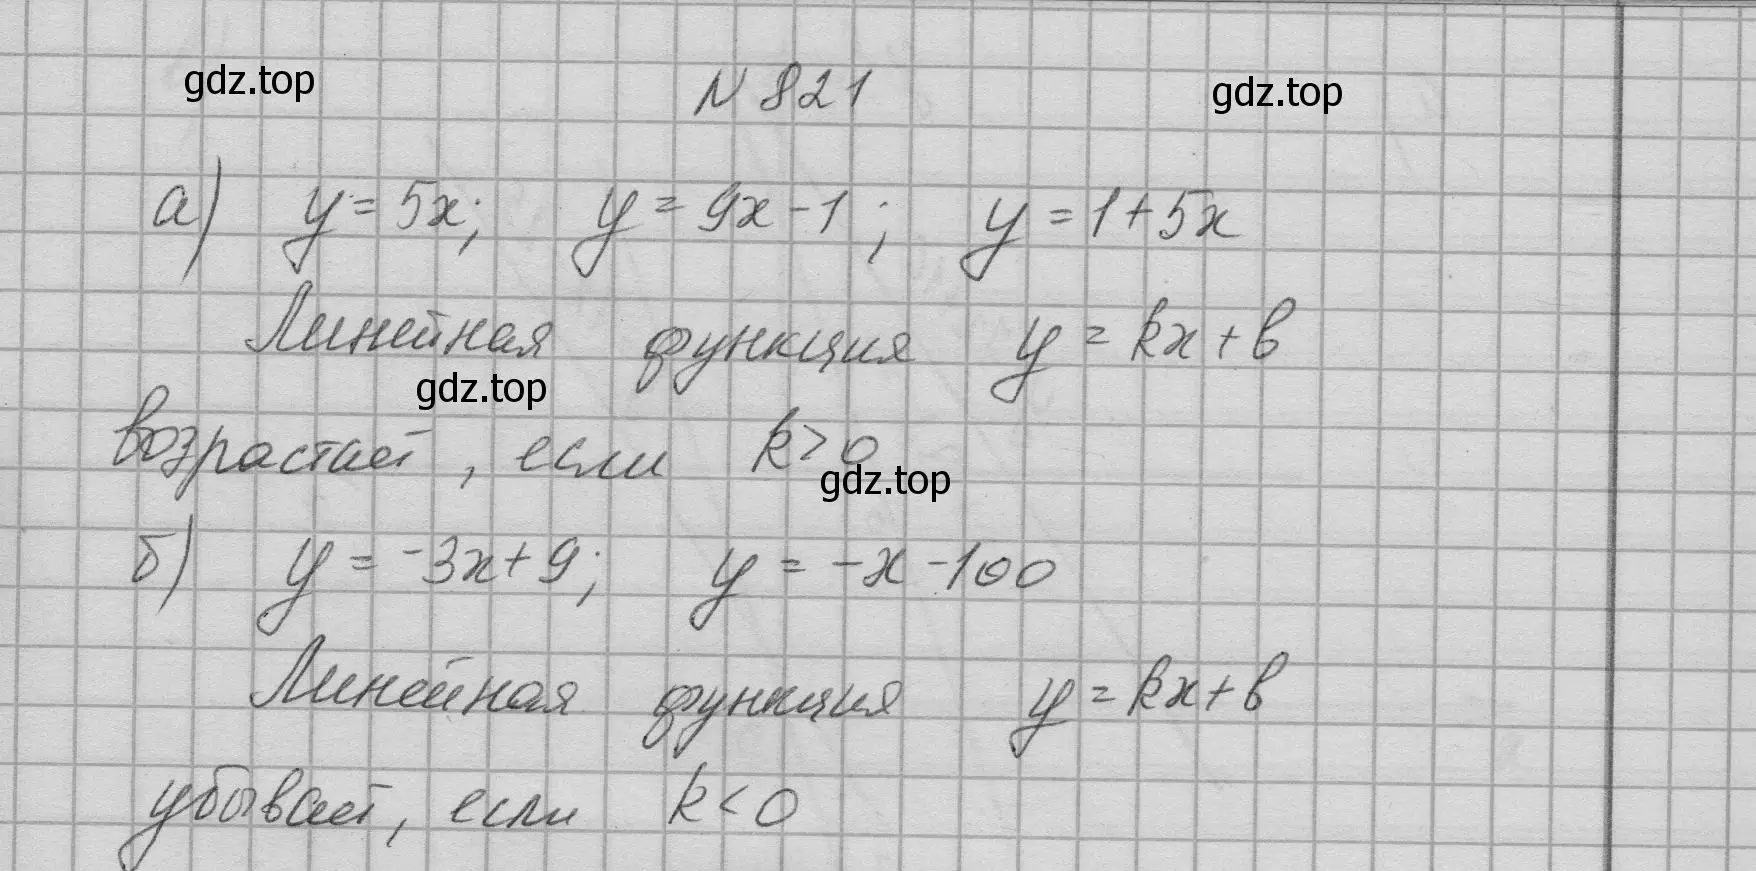 gdz.top
N 821
gdz.top
а) y = 5x; y = 9x - 1; y = 1 + 5x
Линейная функция y = kx + b
gdz.top
возрастает, если k > 0
gdz.top
б) y = -3x + 9; y = -x - 100
Линейная функция y = kx + b
убывает, если k < 0